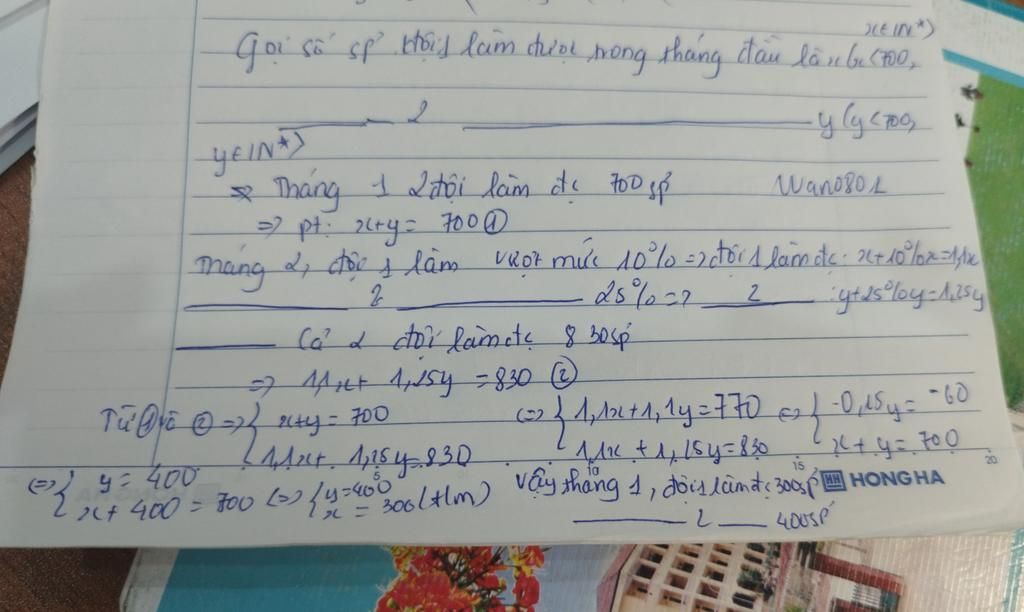 x∈IN*)
Gọi số sp đội 1 làm được trong tháng đầu là x (x<700,
——— 2 ——————— y (y<700,
y∈IN*)
Tháng 1 2 đội làm đc 700 sp Wano801
=> pt: x+y= 700 ①
Tháng 2, đội 1 làm vượt mức 10% => đội 1 làm đc: x+10%x=1,1x
——— 2 ——— 25% => ——— 2 ——— : y+25%y=1,25y
——— Cả 2 đội làm đc 830sp
=> 1,1x+ 1,25y = 830 ②
Từ ① và ② => { x+y = 700 <=> { 1,1x+1,1y=770 <=> { -0,15y = -60
1,1x+ 1,25y=830 1,1x + 1,25y=830 x + y = 700
<=> { y = 400 <=> { y=400 Vậy tháng 1, đội 1 làm đc 300sp HH HONG HA
x+ 400 = 700 x = 300 (t/m) ——— 2 —— 400sp
5 10 15 20